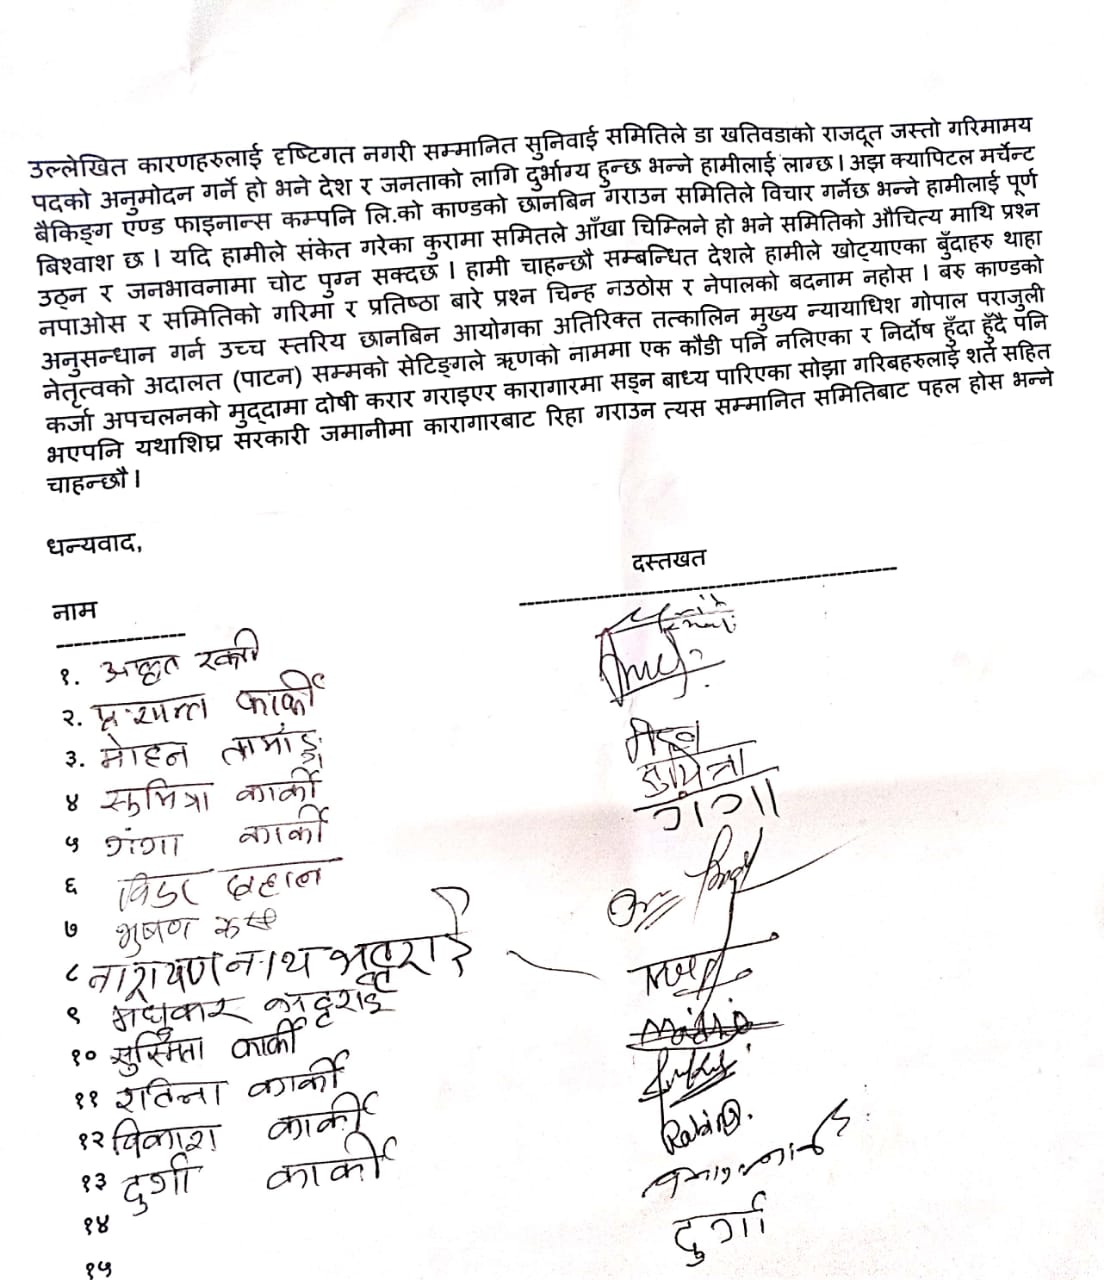 उल्लेखित कारणहरुलाई दृष्टिगत नगरी सम्मानित सुनिवाई समितिले डा खतिवडाको राजदूत जस्तो गरिमामय
पदको अनुमोदन गर्ने हो भने देश र जनताको लागि दुर्भाग्य हुन्छ भन्ने हामीलाई लाग्छ। अझ क्यापिटल मर्चेन्ट
बैकिङ्ग एण्ड फाइनान्स कम्पनि लि.को काण्डको छानबिन गराउन समितिले विचार गर्नेछ भन्ने हामीलाई पूर्ण
बिश्वाश छ। यदि हामीले संकेत गरेका कुरामा समितले आँखा चिम्लिने हो भने समितिको औचित्य माथि प्रश्न
उठ्न र जनभावनामा चोट पुग्न सक्दछ। हामी चाहन्छौ सम्बन्धित देशले हामीले खोट्याएका बुँदाहरु थाहा
नपाओस र समितिको गरिमा र प्रतिष्ठा बारे प्रश्न चिन्ह नउठोस र नेपालको बदनाम नहोस। बरु काण्डको
अनुसन्धान गर्न उच्च स्तरिय छानबिन आयोगका अतिरिक्त तत्कालिन मुख्य न्यायाधिश गोपाल पराजुली
नेतृत्वको अदालत (पाटन) सम्मको सेटिङ्गले ऋणको नाममा एक कौडी पनि नलिएका र निर्दोष हुँदा हुँदै पनि
कर्जा अपचलनको मुद्दामा दोषी करार गराइएर कारागारमा सड्न बाध्य पारिएका सोझा गरिबहरुलाई शर्त सहित
भएपनि यथाशिघ्र सरकारी जमानीमा कारागारबाट रिहा गराउन त्यस सम्मानित समितिबाट पहल होस भन्ने
चाहन्छौ।
धन्यवाद,
नाम दस्तखत
१.
२. कार्की
३. मोहन तामाङ्ग
४ सुमित्रा कार्की सुमित्रा
५ गंगा कार्की गंगा
६
७ भुषण
८ नारायण नाथ भट्टराई
९ मधुकर भट्टराई
१० सुस्मिता कार्की
११ कार्की
१२ विकाश कार्की
१३ दुर्गा कार्की दुर्गा
१४
१५